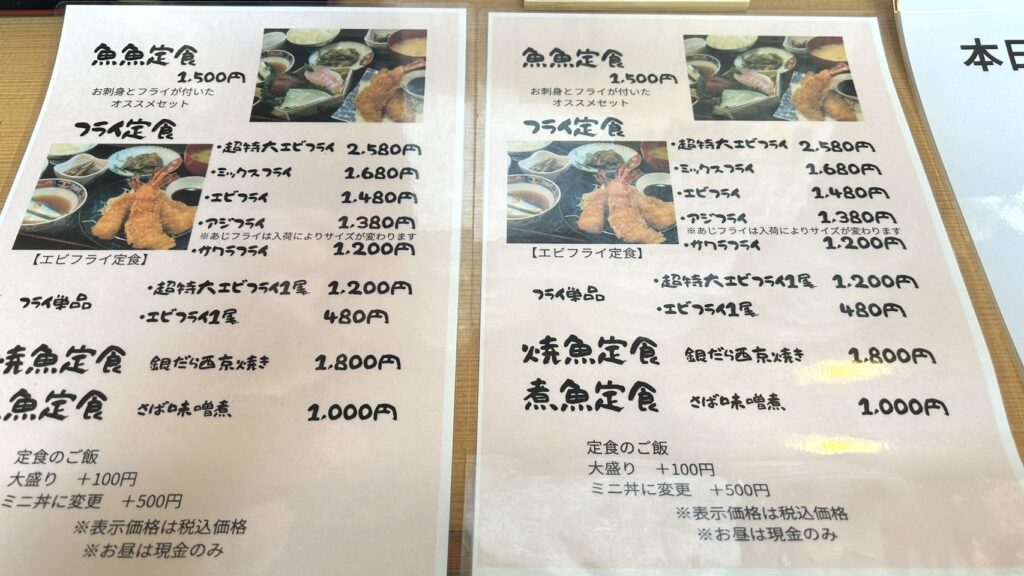 魚魚定食
1.500円
お刺身とフライが付いた
オススメセット
フライ定食
・超特大エビフライ 2.580円
・ミックスフライ 1.680円
・エビフライ 1.480円
・アジフライ 1.380円
※あじフライは入荷によりサイズが変わります
・サクラフライ 1.200円
【エビフライ定食】
フライ単品
・超特大エビフライ1尾 1.200円
・エビフライ1尾 480円
焼魚定食 銀だら西京焼き 1.800円
魚定食 さば味噌煮 1.000円
定食のご飯
大盛り ＋100円
ミニ丼に変更 ＋500円
※表示価格は税込価格
※お昼は現金のみ
魚魚定食
1.500円
お刺身とフライが付いた
オススメセット
フライ定食
・超特大エビフライ 2.580円
・ミックスフライ 1.680円
・エビフライ 1.480円
・アジフライ 1.380円
※あじフライは入荷によりサイズが変わります
・サクラフライ 1.200円
【エビフライ定食】
フライ単品
・超特大エビフライ1尾 1.200円
・エビフライ1尾 480円
焼魚定食 銀だら西京焼き 1.800円
煮魚定食 さば味噌煮 1.000円
定食のご飯
大盛り ＋100円
ミニ丼に変更 ＋500円
※表示価格は税込価格
※お昼は現金のみ
本日